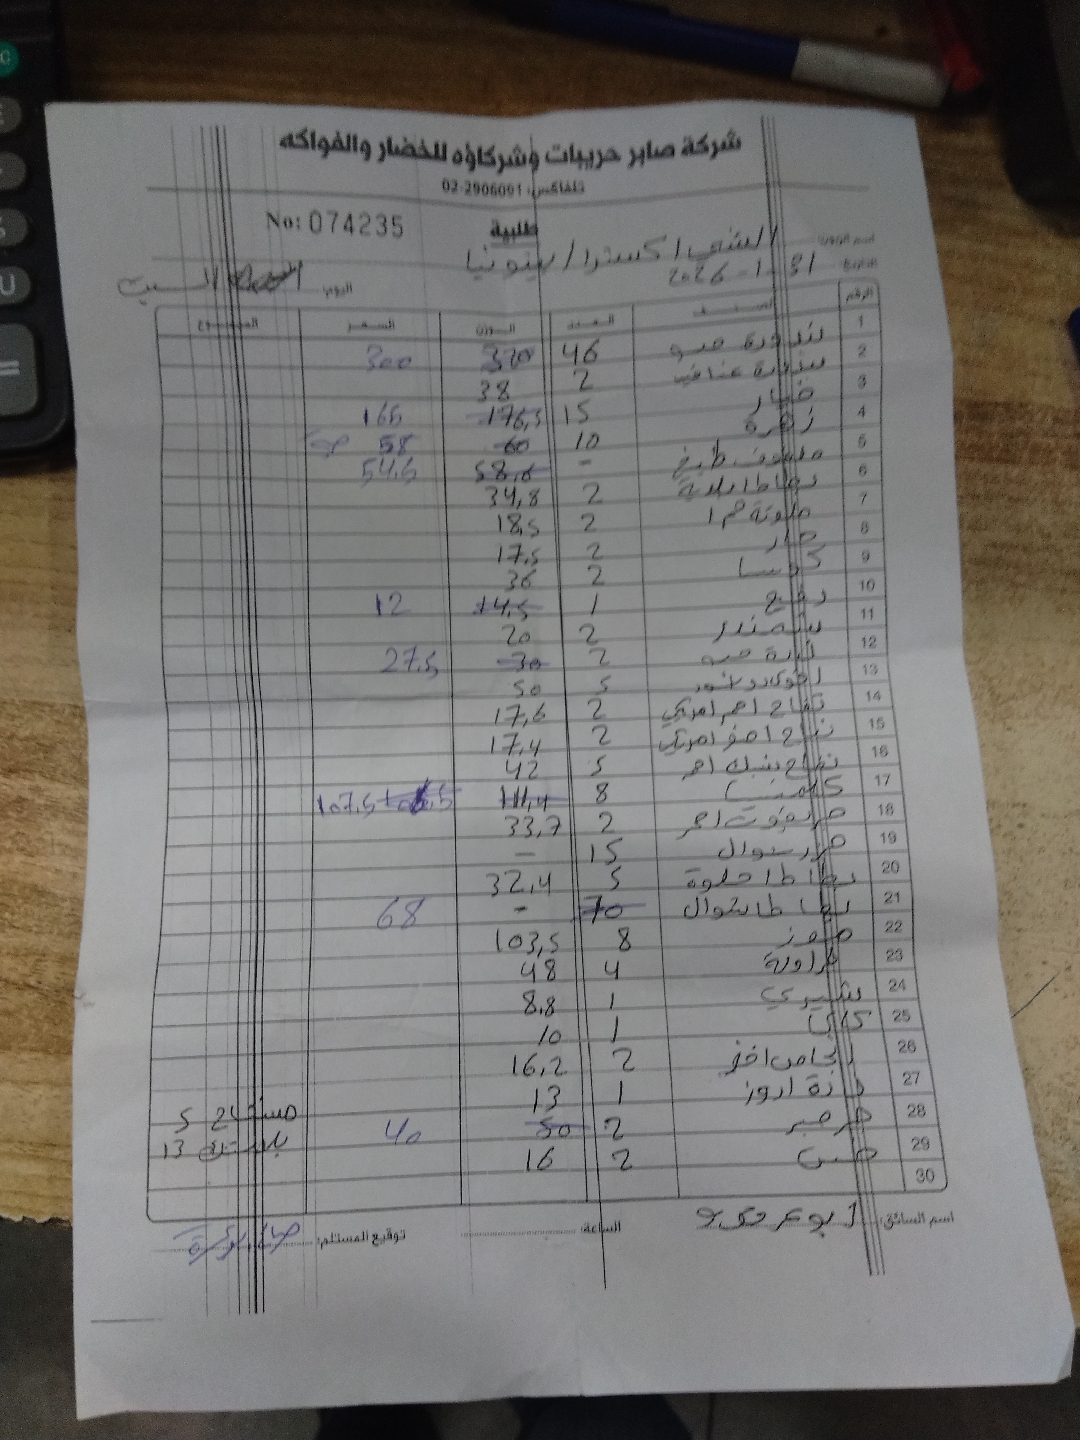 شركة صابر حريبات وشركاؤه للخضار والفواكه
تلفاكس: 02-2906091
No: 074235
طلبية
اسم الزبون: الشني اكسترا /
التاريخ: 31-1-2026
اليوم: السبت
الرقم الصنف العدد الوزن السعر المجموع
1 بندورة 46 320 300
2 بندورة عناقيد 2 38
3 خيار 15 176,5 165
4 زهرة 10 60 58
5 ملفوف طبخ - 58,6 54,5
6 بطاطا 2 34,8
7 ملونة 2 18,5
8 2 17,5
9 كوسا 2 36
10 1 14,5 12
11 شمندر 2 20
12 2 30 27,5
13 افوكادو 5 50
14 تفاح احمر امريكي 2 17,6
15 تفاح اصفر امريكي 2 17,4
16 تفاح بنك احمر 5 42
17 كلمنتينا 8 111,4 107,5
18 احمر 2 33,7
19 شوال 15 -
20 بطاطا حلوة 5 32,4
21 بطاطا شوال 70 - 68
22 موز 8 103,5
23 فراولة 4 48
24 شيري 1 8,8
25 كاكا 1 10
26 2 16,2
27 1 13
28 2 50 40
29 خس 2 16
30
مشتاح 5
بلاستيك 13
اسم السائق:
الساعة:
توقيع المستلم: